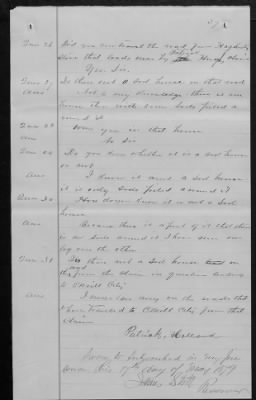 Ques 26 Did you ever travel the road from Hagerty's
store that leads near by Patrick Hughes claim
Yes Sir
Ques 27 Is there not a Sod house on that road
Ans Not to my knowledge there is one
house there with some Sods piled
around it
Ques 28 Were you in that house
No Sir
Ques 29 Do you know whether it is a Sod house
or not
Ans I know it aint a Sod house
it is only Sods piled around it
Ques 30 How do you know it is not a Sod
house
Ans Because there is a part of it that there
is no Sods around it I have seen one
log over the other
Ques 31 Is there not a Sod house
on the road from the claim in question
to O'Neill City
Ans I never saw any on the roads that
I have traveled to O'Neill City from that
claim
Patrick Holland
Sworn to & subscribed in my pre
sence this 17th day of May 1879